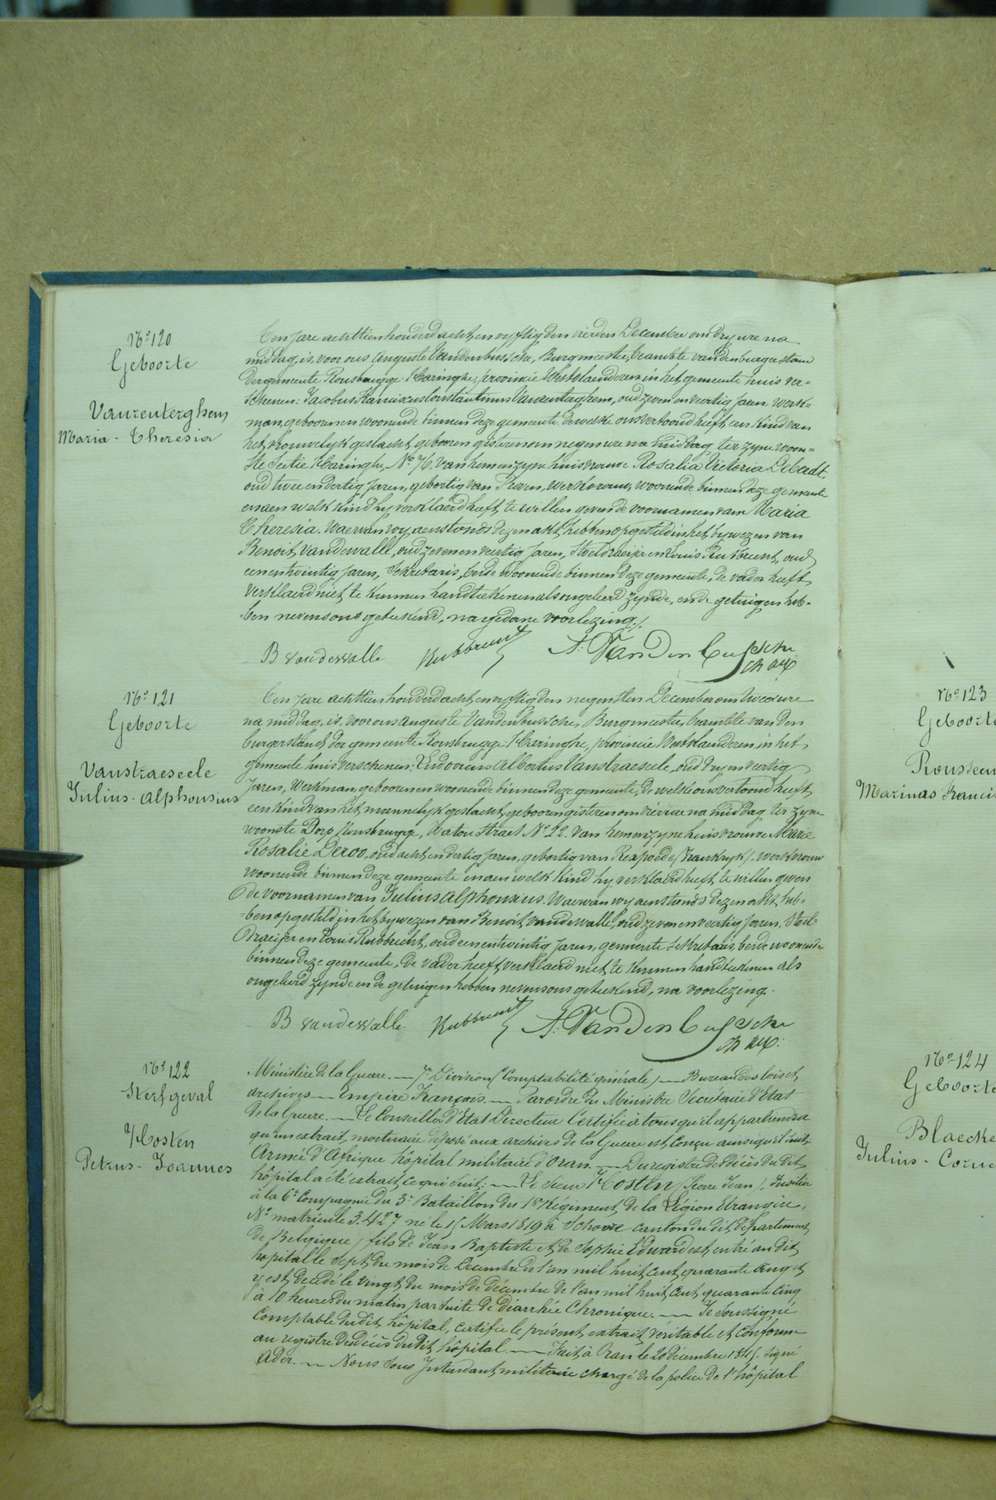 No 120
Geboorte
Vanzenterghem
Maria-Theresia
Ten jare achttien honderd acht en vyftig den vierden December om dry ure na
middag, is voor ons Auguste Vandenbussche, Burgmeester, beambte van den burgerstand
der gemeente Rousbrugge-Haringhe, provincie Westvlaenderen in het gemeente huis ver-
schenen: Jacobus Franciscus Constantinus oud zeven en veertig jaren, werk-
man, geboren en woonende binnen deze gemeente, dewelke ons vertoond heeft een kind van
het vrouwelyk geslacht, geboren gisteren en negen ure na middag, ter zyner woon-
ste Sectie Haringhe, No 76, van hem en zyne huisvrouwe Rosalia Victoria
oud twee en dertig jaren, geboortig van werkvrouw, woonende binnen deze gemeente
en aen welk kind hy verklaerd heeft te willen geven de voornamen van Maria
Theresia. Waervan wy aenstonds dezen akt hebben opgesteld in het bywezen van
Benoit Vandewalle, oud zeven en veertig jaren, Stoeldraeijer en Louis Rubbrecht, oud
een en twintig jaren, Sekretaris, beide woonende binnen deze gemeente, de vader heeft
verklaerd niet te kunnen handteekenen als ongeleerd zynde, en de getuigen heb-
ben nevens ons geteekend, na gedane voorlezing./.
B vandewalle Rubbrecht A. VandenBussche
No 121
Geboorte
Vanstraeseele
Julius-Alphonsus
Ten jare achttien honderd acht en vyftig den negensten December om twee ure
na middag, is voor ons Auguste Vandenbussche, Burgmeester, beambte van den
burgerstand der gemeente Rousbrugge-Haringhe, provincie Westvlaenderen in het
gemeente huis verschenen: Ludovicus Albertus Vanstraeseele, oud dry en veertig
jaren, Werkman, geboren en woonende binnen deze gemeente, de welke ons vertoond heeft
een kind van het mannelyk geslacht, geboren gisteren om vier ure na middag ter zyne
woonste Dorp Rousbrugge, Watou straet No 22 van hem en zyne huisvrouwe Marie
Rosalie Deroo, oud acht en dertig jaren, geboortig van Rexpoëde (Frankryk), werkvrouw
woonende binnen deze gemeente en aen welk kind hy verklaerd heeft te willen geven
de voornamen van Julius Alphonsus. Waervan wy aenstonds dezen akt heb-
ben opgesteld in het bywezen van Benoit Vandewalle, oud zeven en veertig jaren, Stoel-
draeijer en Louis Rubbrecht, oud een en twintig jaren, gemeente Sekretaris, beide woonende
binnen deze gemeente, de vader heeft verklaerd niet te kunnen handteekenen als
ongeleerd zynde en de getuigen hebben nevens ons geteekend, na voorlezing.
B vandewalle Rubbrecht A. VandenBussche
No 122
Sterfgeval
Hosten
Petrus-Joannes
Ministère de la Guerre. — 7e Division (Comptabilité générale) — Bureau des lois et
archives — Empire Français. — Par ordre du Ministre Secrétaire d'Etat
de la Guerre. — Le Conseiller d'Etat Directeur Certifie à tous qu'il appartiendra
qu'un extrait mortuaire déposé aux archives de la Guerre est conçu ainsi qu'il suit:
Armée d'Afrique hôpital militaire d'Oran. — Du registre de décès du dit
hôpital a été extrait ce qui suit: — Le sieur Hosten (Pierre Jean), fusilier
à la 6e Compagnie du 3e Bataillon du 1er Régiment de la Légion Etrangère,
No matricule 3.427 né le 15 Mars 1819 à canton du dit département
de Belgique, fils de Jean Baptiste et de Sophie Edward est entré au dit
hôpital le Sept du mois de Décembre de l'an mil huit cent quarante cinq et
y est décédé le vingt du mois de décembre de l'an mil huit cent quarante cinq
à 10 heures du matin par suite de diarrhée Chronique. — Je soussigné
Comptable du dit hôpital, certifie le présent extrait véritable et conforme
au registre de décès du dit hôpital. — Fait à Oran le 20 décembre 1845. Signé
Ader. — Nous Sous Intendant militaire chargé de la police de l'hôpital
No 123
Geboorte
Marinus Franci
No 124
Geboorte
Blaecke
Julius-Corne